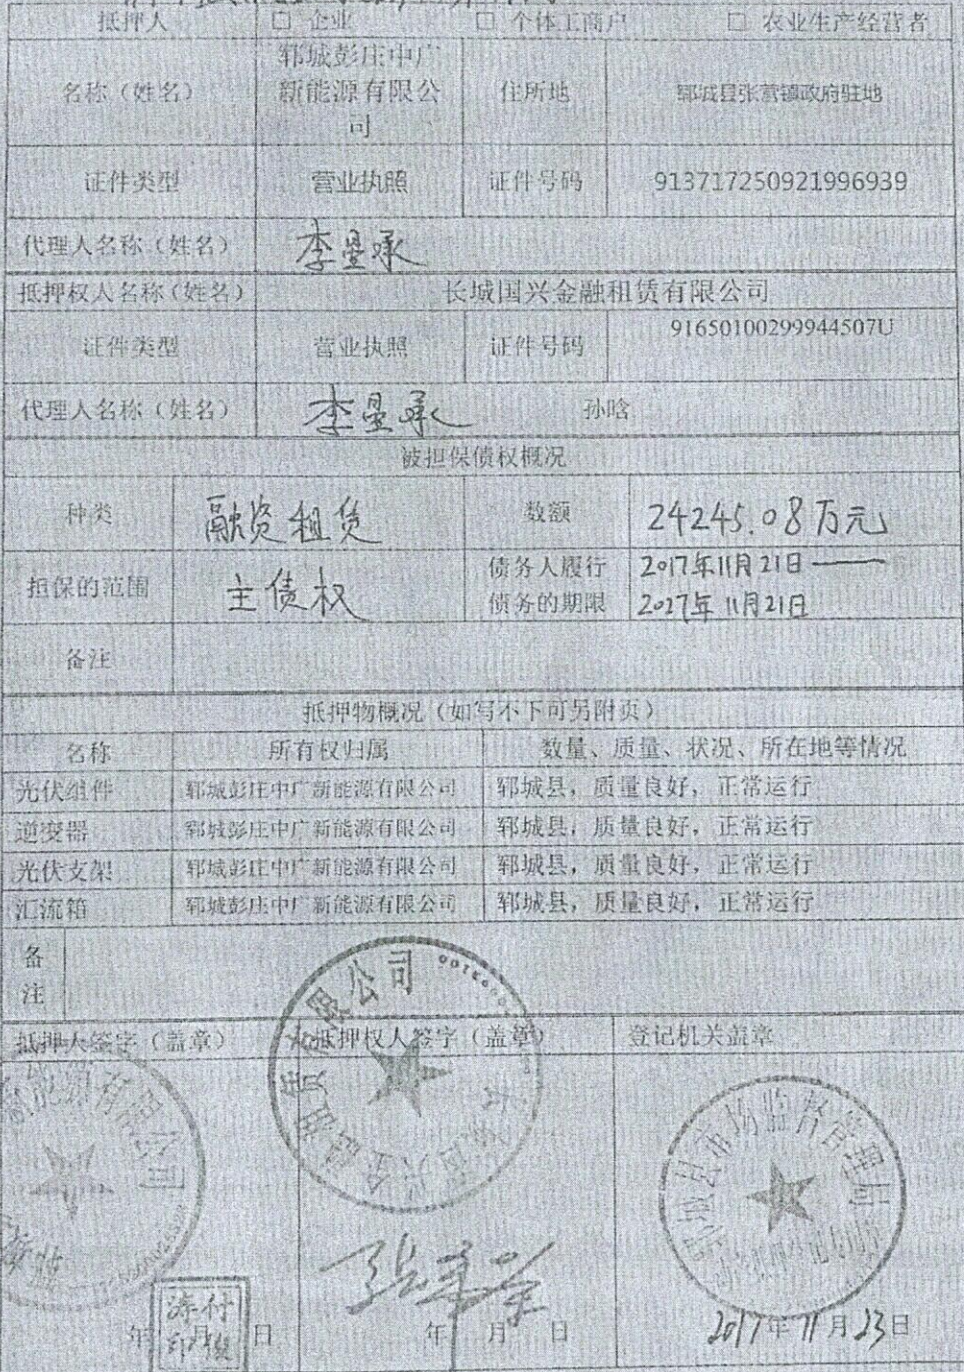 抵押人 □ 企业 □ 个体工商户 □ 农业生产经营者
名称（姓名） 郓城彭庄中广新能源有限公司 住所地 郓城县张营镇政府驻地
证件类型 营业执照 证件号码 913717250921996939
代理人名称（姓名） 李显承
抵押权人名称（姓名） 长城国兴金融租赁有限公司
证件类型 营业执照 证件号码 91650100299944507U
代理人名称（姓名） 李显承 孙晗
被担保债权概况
种类 融资租赁 数额 24245.08万元
担保的范围 主债权 债务人履行债务的期限 2017年11月21日——2027年11月21日
备注
抵押物概况（如写不下可另附页）
名称 所有权归属 数量、质量、状况、所在地等情况
光伏组件 郓城彭庄中广新能源有限公司 郓城县，质量良好，正常运行
逆变器 郓城彭庄中广新能源有限公司 郓城县，质量良好，正常运行
光伏支架 郓城彭庄中广新能源有限公司 郓城县，质量良好，正常运行
汇流箱 郓城彭庄中广新能源有限公司 郓城县，质量良好，正常运行
备注
抵押人签字（盖章） 抵押权人签字（盖章） 登记机关盖章
新能源有限公司
长城国兴金融租赁有限公司
郓城县市场监督管理局
年 月 日 年 月 日 2017年11月23日